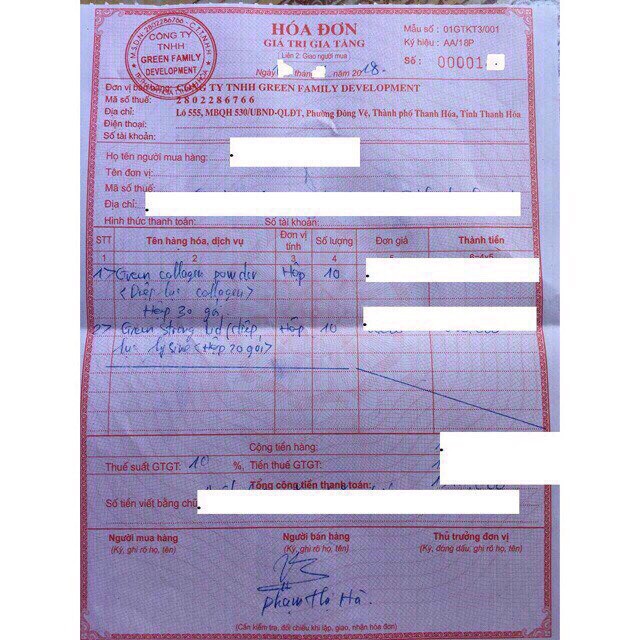 M.S.D.N: 2802286766 - C.T.T.N.H.H
CÔNG TY
TNHH
GREEN FAMILY
DEVELOPMENT
HÓA ĐƠN
GIÁ TRỊ GIA TĂNG
Liên 2: Giao người mua
Mẫu số: 01GTKT3/001
Ký hiệu: AA/18P
Số: 00001
Ngày 2018.
Đơn vị bán hàng: CÔNG TY TNHH GREEN FAMILY DEVELOPMENT
Mã số thuế: 2802286766
Địa chỉ: Lô 555, MBQH 530/UBND-QLĐT, Phường Đông Vệ, Thành phố Thanh Hóa, Tỉnh Thanh Hóa
Điện thoại:
Số tài khoản:
Họ tên người mua hàng:
Tên đơn vị:
Mã số thuế:
Địa chỉ:
Hình thức thanh toán: Số tài khoản:
STT Tên hàng hóa, dịch vụ Đơn vị tính Số lượng Đơn giá Thành tiền
1 2 3 4 5 6=4x5
1> Green collagen powder Hộp 10
<Diệp lục collagen>
Hộp 30 gói
2> Green strong kid (diệp Hộp 10
lục lysine <Hộp 20 gói>
Cộng tiền hàng:
Thuế suất GTGT: 10 %, Tiền thuế GTGT:
Tổng cộng tiền thanh toán:
Số tiền viết bằng chữ
Người mua hàng Người bán hàng Thủ trưởng đơn vị
(Ký, ghi rõ họ, tên) (Ký, ghi rõ họ, tên) (Ký, đóng dấu, ghi rõ họ, tên)
Phạm Thị Hà.
(Cần kiểm tra, đối chiếu khi lập, giao, nhận hóa đơn)